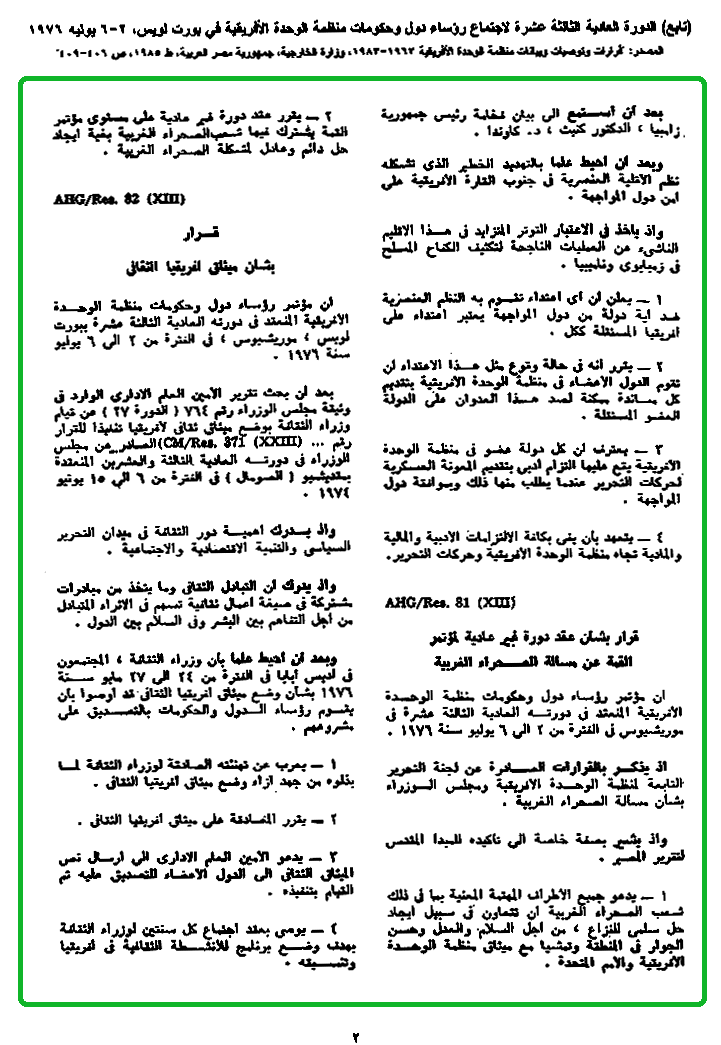 (تابع) الدورة العادية الثالثة عشرة لاجتماع رؤساء دول وحكومات منظمة الوحدة الأفريقية في بورت لويس، ٢-٦ يوليه ١٩٧٦
المصدر: قرارات وتوصيات وبيانات منظمة الوحدة الأفريقية ١٩٦٣-١٩٨٣، وزارة الخارجية، جمهورية مصر العربية، ط ١٩٨٥، ص ٤٠٦-٤٠٩
بعد أن استمع الى بيان فخامة رئيس جمهورية
زامبيا ، الدكتور كنيث ، د. كاوندا .
وبعد أن أحيط علما بالتهديد الخطير الذى تشكله
نظم الاقلية العنصرية فى جنوب القارة الأفريقية على
أمن دول المواجهة .
واذ ياخذ فى الاعتبار التوتر المتزايد فى هذا الاقليم
الناشىء عن العمليات الناجحة لتكثيف الكفاح المسلح
فى زمبابوى وناميبيا .
١ — يعلن أن أى اعتداء تقوم به النظم العنصرية
ضد أية دولة من دول المواجهة يعتبر اعتداء على
أفريقيا المستقلة ككل .
٢ — يقرر أنه فى حالة وقوع مثل هذا الاعتداء أن
تقوم الدول الأعضاء فى منظمة الوحدة الأفريقية بتقديم
كل مساندة ممكنة لصد هذا العدوان على الدولة
العضو المستقلة .
٣ — يعترف أن كل دولة عضو فى منظمة الوحدة
الأفريقية يقع عليها التزام أدبى بتقديم المعونة العسكرية
لحركات التحرير عندما يطلب منها ذلك وبموافقة دول
المواجهة .
٤ — يتعهد بأن يفى بكافة الالتزامات الأدبية والمالية
والمادية تجاه منظمة الوحدة الأفريقية وحركات التحرير.
AHG/Res. 81 (XIII)
قرار بشأن عقد دورة غير عادية لمؤتمر
القمة عن مسالة الصحراء الغربية
ان مؤتمر رؤساء دول وحكومات منظمة الوحدة
الأفريقية المنعقد فى دورته العادية الثالثة عشرة فى
موريشيوس فى الفترة من ٢ الى ٦ يوليو سنة ١٩٧٦ .
اذ يذكر بالقرارات الصادرة عن لجنة التحرير
التابعة لمنظمة الوحدة الأفريقية ومجلس الوزراء
بشأن مسالة الصحراء الغربية .
واذ يشير بصفة خاصة الى تأكيده للمبدأ المقدس
لتقرير المصير .
١ — يدعو جميع الأطراف المهتمة المعنية بما فى ذلك
شعب الصحراء الغربية أن تتعاون فى سبيل ايجاد
حل سلمى للنزاع ، من أجل السلام والعدل وحسن
الجوار فى المنطقة وتمشيا مع ميثاق منظمة الوحدة
الأفريقية والأمم المتحدة .
٢ — يقرر عقد دورة غير عادية على مستوى مؤتمر
القمة يشترك فيها شعب الصحراء الغربية بغية ايجاد
حل دائم وعادل لمشكلة الصحراء الغربية .
AHG/Res. 82 (XIII)
قرار
بشأن ميثاق افريقيا الثقافى
أن مؤتمر رؤساء دول وحكومات منظمة الوحدة
الأفريقية المنعقد فى دورته العادية الثالثة عشرة ببورت
لويس ، موريشيوس ، فى الفترة من ٢ الى ٦ يوليو
سنة ١٩٧٦ .
بعد أن بحث تقرير الأمين العام الادارى الوارد فى
وثيقة مجلس الوزراء رقم ٧٦٤ ( الدورة ٢٧ ) عن قيام
وزراء الثقافة بوضع ميثاق ثقافى لأفريقيا تنفيذا للقرار
رقم ... CM/Res. 371 (XXIII)) الصادر عن مجلس
الوزراء فى دورته العادية الثالثة والعشرين المنعقدة
بمقديشيو ( الصومال ) فى الفترة من ٦ الى ١٥ يونيو
١٩٧٤ .
واذ يدرك أهمية دور الثقافة فى ميدان التحرير
السياسى والتنمية الاقتصادية والاجتماعية .
واذ يدرك أن التبادل الثقافى وما يتخذ من مبادرات
مشتركة فى صيغة أعمال ثقافية تسهم فى الاثراء المتبادل
من أجل التفاهم بين البشر وفى السلام بين الدول .
وبعد أن أحيط علما بأن وزراء الثقافة ، المجتمعون
فى أديس أبابا فى الفترة من ٢٤ الى ٢٧ مايو سنة
١٩٧٦ بشأن وضع ميثاق أفريقيا الثقافى قد أوصوا بأن
يقوم رؤساء الدول والحكومات بالتصديق على
مشروعهم .
١ — يعرب عن تهنئته الصادقة لوزراء الثقافة لما
بذلوه من جهد ازاء وضع ميثاق أفريقيا الثقافى .
٢ — يقرر المصادقة على ميثاق أفريقيا الثقافى .
٣ — يدعو الأمين العام الادارى الى ارسال نص
الميثاق الثقافى الى الدول الأعضاء للتصديق عليه ثم
القيام بتنفيذه .
٤ — يوصى بعقد اجتماع كل سنتين لوزراء الثقافة
بهدف وضع برنامج للأنشطة الثقافية فى أفريقيا
وتنسيقه .
٢